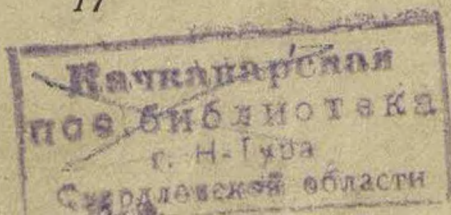 17
Качканарская
пос. библиотека
г. Н-Тура
Свердловской области